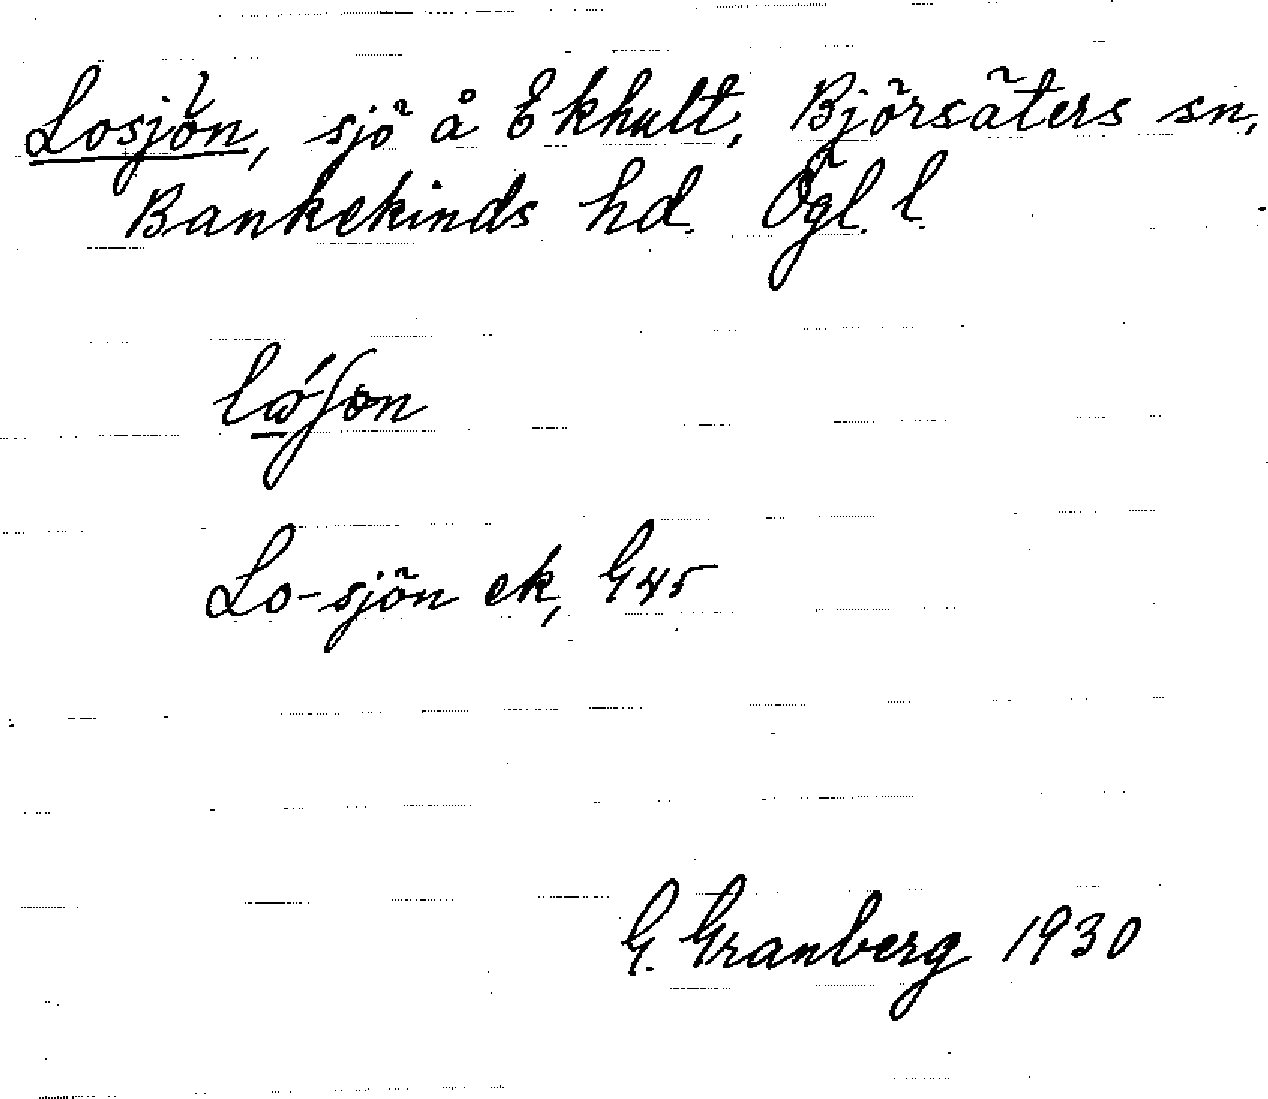 Losjön, sjö å Ekhult, Björsäters sn,
Bankekinds hd. Ögl. l.
Lo-sjön ek,
G. Granberg 1930